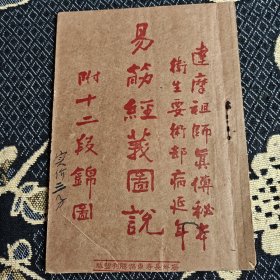 達摩祖師真傳秘本
衛生要術却病延年
易筋經義圖說
附十二段錦圖
实价二角